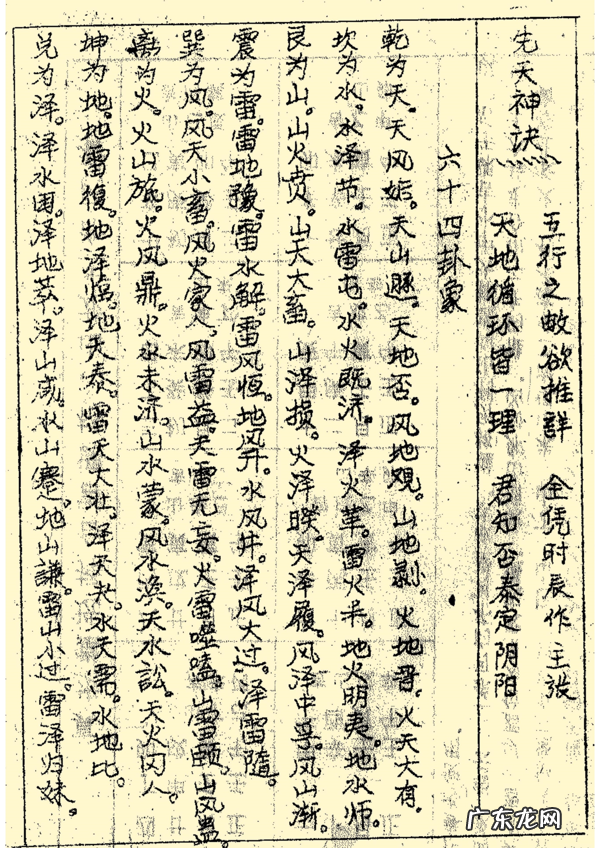 先天神诀
五行之数欲推详 全凭时辰作主张
天地循环皆一理 君知否泰定阴阳
六十四卦象
乾为天。天风姤。天山遯。天地否。风地观。山地剥。火地晋。火天大有。
坎为水。水泽节。水雷屯。水火既济。泽火革。雷火丰。地火明夷。地水师。
艮为山。山火贲。山天大畜。山泽损。火泽睽。天泽履。风泽中孚。风山渐。
震为雷。雷地豫。雷水解。雷风恒。地风升。水风井。泽风大过。泽雷随。
巽为风。风天小畜。风火家人。风雷益。天雷无妄。火雷噬嗑。山雷颐。山风蛊。
離为火。火山旅。火风鼎。火水未济。山水蒙。风水涣。天水訟。天火同人。
坤为地。地雷復。地泽临。地天泰。雷天大壮。泽天夬。水天需。水地比。
兑为泽。泽水困。泽地萃。泽山咸。水山蹇。地山謙。雷山小过。雷泽归妹。
广东龙网